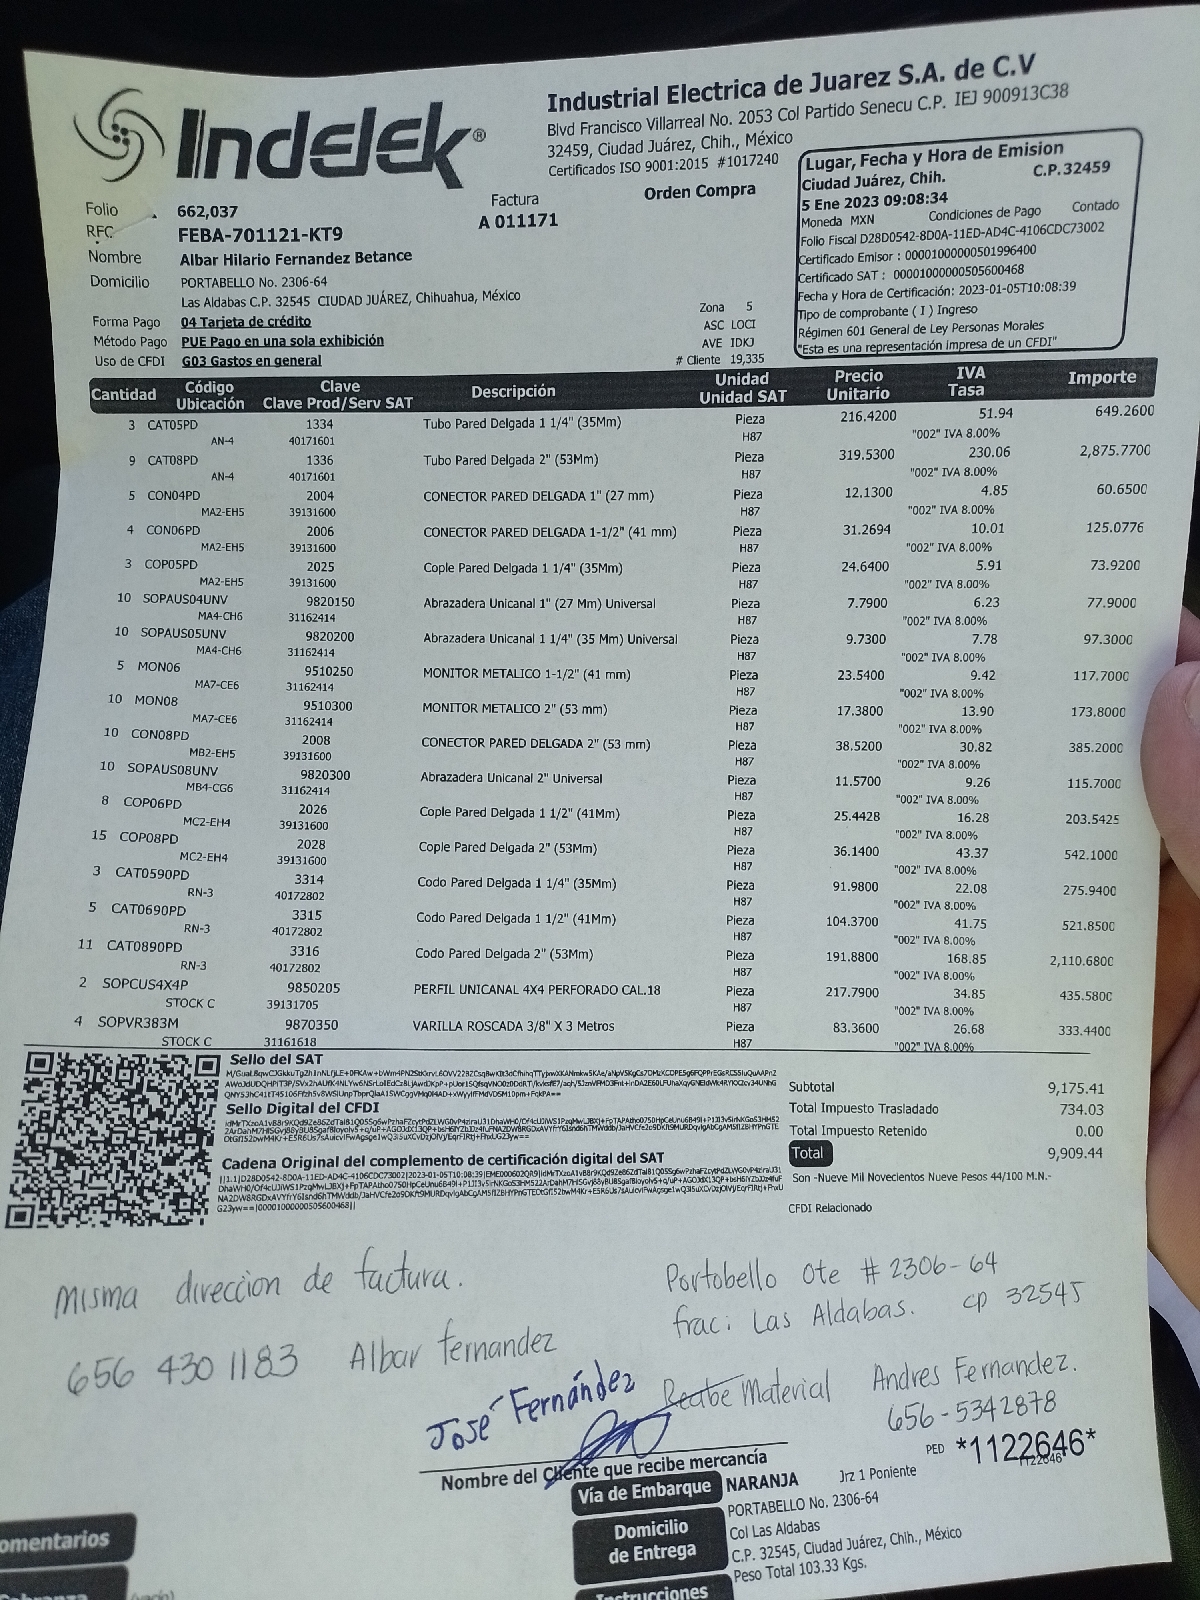 Indelek®
Industrial Electrica de Juarez S.A. de C.V
Blvd Francisco Villarreal No. 2053 Col Partido Senecu C.P. IEJ 900913C38
32459, Ciudad Juárez, Chih., México
Certificados ISO 9001:2015 #1017240
Orden Compra
Lugar, Fecha y Hora de Emision
Ciudad Juárez, Chih. C.P.32459
5 Ene 2023 09:08:34
Moneda MXN Condiciones de Pago Contado
Folio Fiscal D28D0542-8D0A-11ED-AD4C-4106CDC73002
Certificado Emisor : 00001000000501996400
Certificado SAT : 00001000000505600468
Fecha y Hora de Certificación: 2023-01-05T10:08:39
Tipo de comprobante ( I ) Ingreso
Régimen 601 General de Ley Personas Morales
"Esta es una representación impresa de un CFDI"
Folio 662,037
Factura
A 011171
RFC FEBA-701121-KT9
Nombre Albar Hilario Fernandez Betance
Domicilio PORTABELLO No. 2306-64
Las Aldabas C.P. 32545 CIUDAD JUÁREZ, Chihuahua, México
Forma Pago 04 Tarjeta de crédito
Método Pago PUE Pago en una sola exhibición
Uso de CFDI G03 Gastos en general
Zona 5
ASC LOCI
AVE IDKJ
# Cliente 19,335
Cantidad Código Ubicación Clave Clave Prod/Serv SAT Descripción Unidad Unidad SAT Precio Unitario IVA Tasa Importe
3 CAT05PD 1334 Tubo Pared Delgada 1 1/4" (35Mm) Pieza 216.4200 51.94 649.2600
AN-4 40171601 H87 "002" IVA 8.00%
9 CAT08PD 1336 Tubo Pared Delgada 2" (53Mm) Pieza 319.5300 230.06 2,875.7700
AN-4 40171601 H87 "002" IVA 8.00%
5 CON04PD 2004 CONECTOR PARED DELGADA 1" (27 mm) Pieza 12.1300 4.85 60.6500
MA2-EH5 39131600 H87 "002" IVA 8.00%
4 CON06PD 2006 CONECTOR PARED DELGADA 1-1/2" (41 mm) Pieza 31.2694 10.01 125.0776
MA2-EH5 39131600 H87 "002" IVA 8.00%
3 COP05PD 2025 Cople Pared Delgada 1 1/4" (35Mm) Pieza 24.6400 5.91 73.9200
MA2-EH5 39131600 H87 "002" IVA 8.00%
10 SOPAUS04UNV 9820150 Abrazadera Unicanal 1" (27 Mm) Universal Pieza 7.7900 6.23 77.9000
MA4-CH6 31162414 H87 "002" IVA 8.00%
10 SOPAUS05UNV 9820200 Abrazadera Unicanal 1 1/4" (35 Mm) Universal Pieza 9.7300 7.78 97.3000
MA4-CH6 31162414 H87 "002" IVA 8.00%
5 MON06 9510250 MONITOR METALICO 1-1/2" (41 mm) Pieza 23.5400 9.42 117.7000
MA7-CE6 31162414 H87 "002" IVA 8.00%
10 MON08 9510300 MONITOR METALICO 2" (53 mm) Pieza 17.3800 13.90 173.8000
MA7-CE6 31162414 H87 "002" IVA 8.00%
10 CON08PD 2008 CONECTOR PARED DELGADA 2" (53 mm) Pieza 38.5200 30.82 385.2000
MB2-EH5 39131600 H87 "002" IVA 8.00%
10 SOPAUS08UNV 9820300 Abrazadera Unicanal 2" Universal Pieza 11.5700 9.26 115.7000
MB4-CG6 31162414 H87 "002" IVA 8.00%
8 COP06PD 2026 Cople Pared Delgada 1 1/2" (41Mm) Pieza 25.4428 16.28 203.5425
MC2-EH4 39131600 H87 "002" IVA 8.00%
15 COP08PD 2028 Cople Pared Delgada 2" (53Mm) Pieza 36.1400 43.37 542.1000
MC2-EH4 39131600 H87 "002" IVA 8.00%
3 CAT0590PD 3314 Codo Pared Delgada 1 1/4" (35Mm) Pieza 91.9800 22.08 275.9400
RN-3 40172802 H87 "002" IVA 8.00%
5 CAT0690PD 3315 Codo Pared Delgada 1 1/2" (41Mm) Pieza 104.3700 41.75 521.8500
RN-3 40172802 H87 "002" IVA 8.00%
11 CAT0890PD 3316 Codo Pared Delgada 2" (53Mm) Pieza 191.8800 168.85 2,110.6800
RN-3 40172802 H87 "002" IVA 8.00%
2 SOPCUS4X4P 9850205 PERFIL UNICANAL 4X4 PERFORADO CAL.18 Pieza 217.7900 34.85 435.5800
STOCK C 39131705 H87 "002" IVA 8.00%
4 SOPVR383M 9870350 VARILLA ROSCADA 3/8" X 3 Metros Pieza 83.3600 26.68 333.4400
STOCK C 31161618 H87 "002" IVA 8.00%
Sello del SAT
Sello Digital del CFDI
Cadena Original del complemento de certificación digital del SAT
Subtotal 9,175.41
Total Impuesto Trasladado 734.03
Total Impuesto Retenido 0.00
Total 9,909.44
Son -Nueve Mil Novecientos Nueve Pesos 44/100 M.N.-
CFDI Relacionado
misma direccion de factura.
656 430 1183 Albar fernandez
Portobello Ote # 2306-64
frac: Las Aldabas. cp 32545
José Fernández
Recibe Material Andres Fernandez.
656-5342878
PED *1122646*
1122646
Nombre del Cliente que recibe mercancía
Vía de Embarque NARANJA Jrz 1 Poniente
Domicilio de Entrega
PORTABELLO No. 2306-64
Col Las Aldabas
C.P. 32545, Ciudad Juárez, Chih., México
Peso Total 103.33 Kgs.
Instrucciones
omentarios